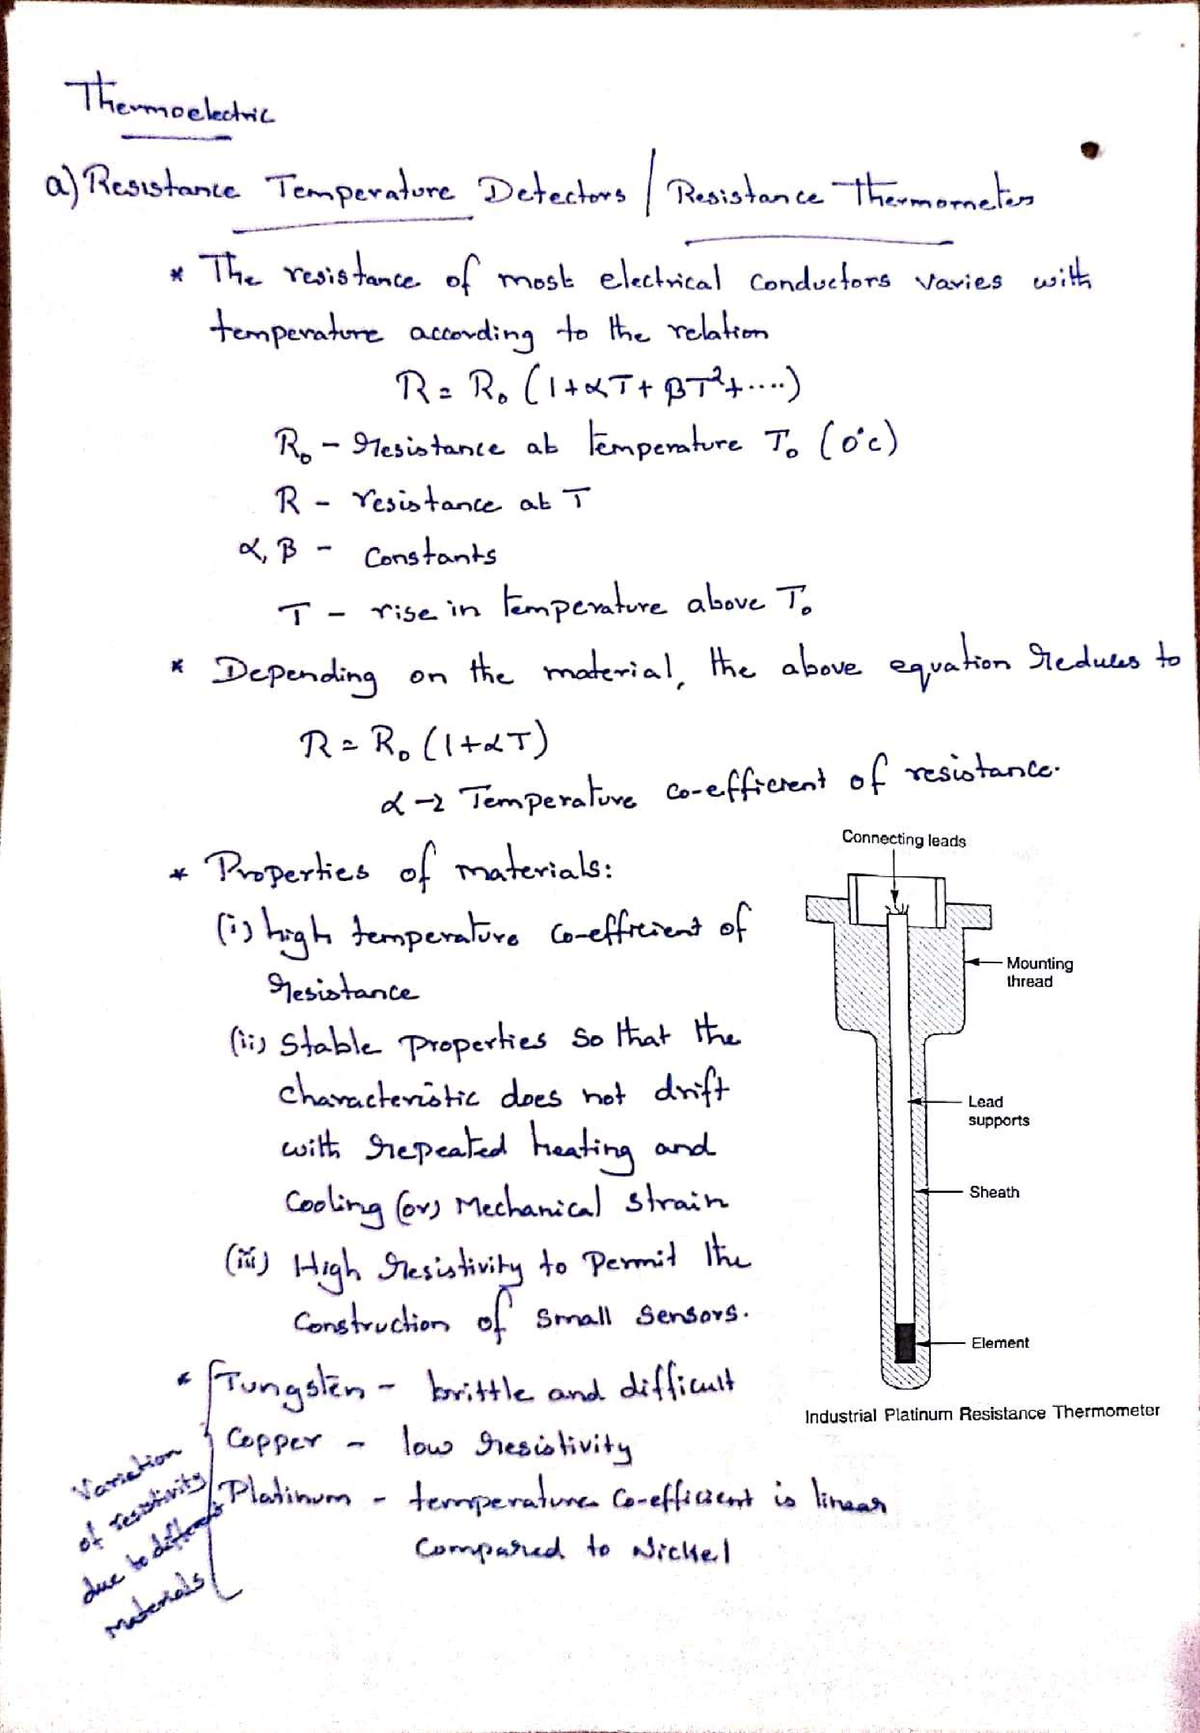 Thermoelectric
a) Resistance Temperature Detectors / Resistance Thermometers
* The resistance of most electrical conductors varies with
temperature according to the relation
R = R₀ (1 + αT + βT² + ....)
R₀ - resistance at temperature T₀ (0°c)
R - resistance at T
α, β - Constants
T - rise in temperature above T₀
* Depending on the material, the above equation reduces to
R = R₀ (1 + αT)
α → Temperature co-efficient of resistance.
* Properties of materials:
(i) high temperature co-efficient of
resistance
(ii) Stable properties so that the
characteristic does not drift
with repeated heating and
cooling (or) Mechanical strain
(iii) High resistivity to permit the
construction of small sensors.
Connecting leads
Mounting
thread
Lead
supports
Sheath
Element
Industrial Platinum Resistance Thermometer
* Tungsten - brittle and difficult
Copper - low resistivity
Platinum - temperature co-efficient is linear
compared to Nickel
Variation
of resistivity
due to different
materials